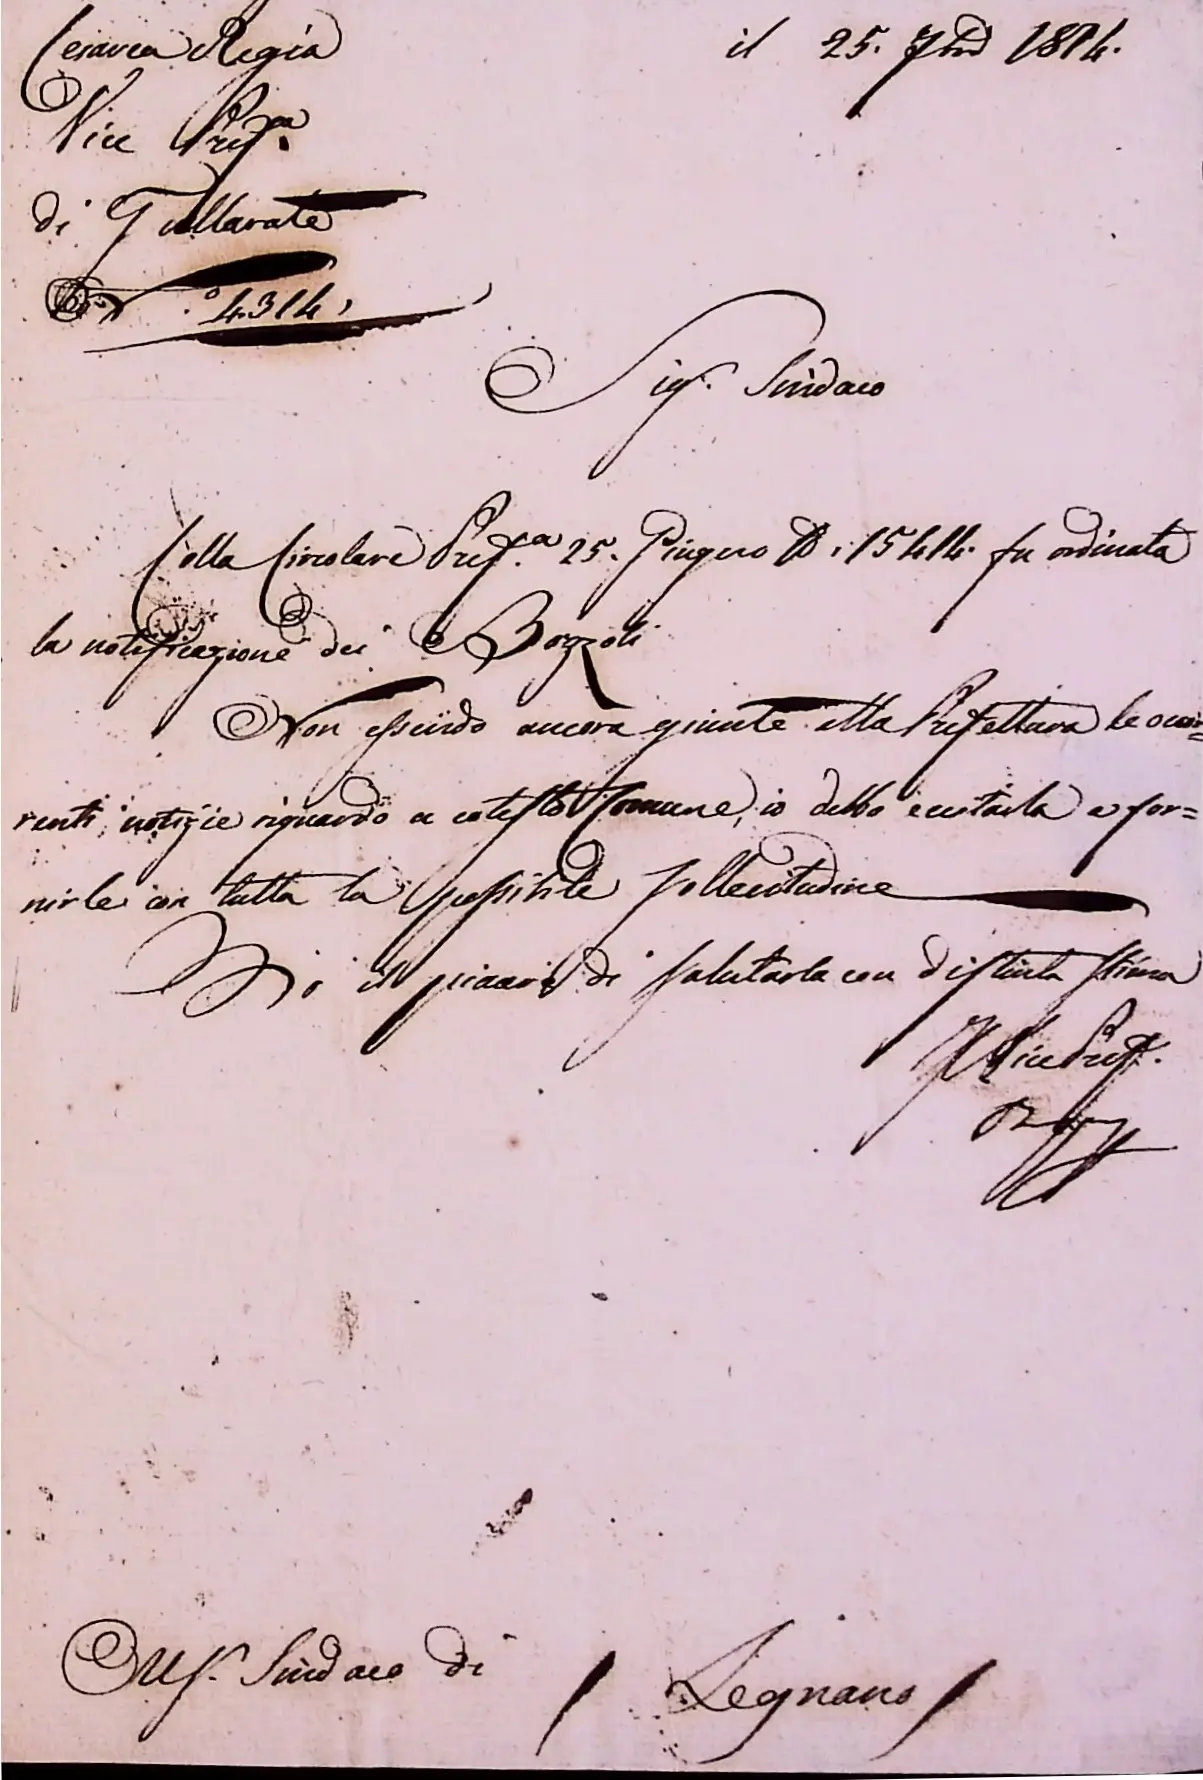 Cesarea Regia
il 25. 7bre 1814.
Vice Pref.a
di Gallarate
N.o 4314,
Sig.r Sindaco
Colla Circolare Pref.a 25. Giugno N. 15414. fu ordinata
la notificazione dei Bozzoli
Non essendo ancora giunte alla Prefettura le occor=
renti notizie riguardo a cotesto Comune, io debbo eccitarla a for=
nirle con tutta la possibile sollecitudine
Ho il piacere di salutarla con distinta stima
Il Vice Pref.
Al Sig. Sindaco di Legnano